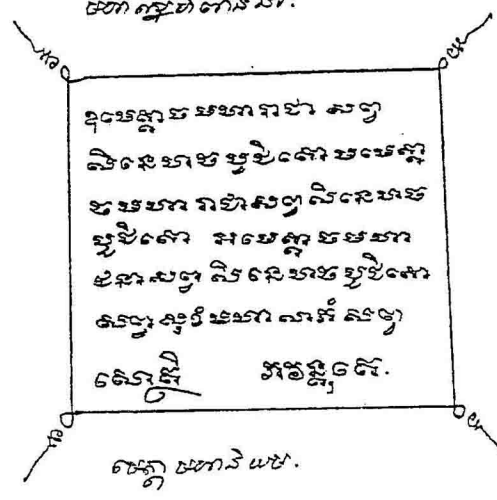 ឧមេត្តាច មហារាជា សព្វ
សិនេហាច បូជិតោ មមេត្តា
ច មហា រាជា សព្វ សិនេហាច
បូជិតោ អមេត្តា ច មហា
ជនា សព្វ សិនេហាច បូជិតោ
សព្វ សុខំ មហា លាភំ សព្វ
សោត្ថិ ភវន្តុតេ.
មេត្តា មហានិយម.